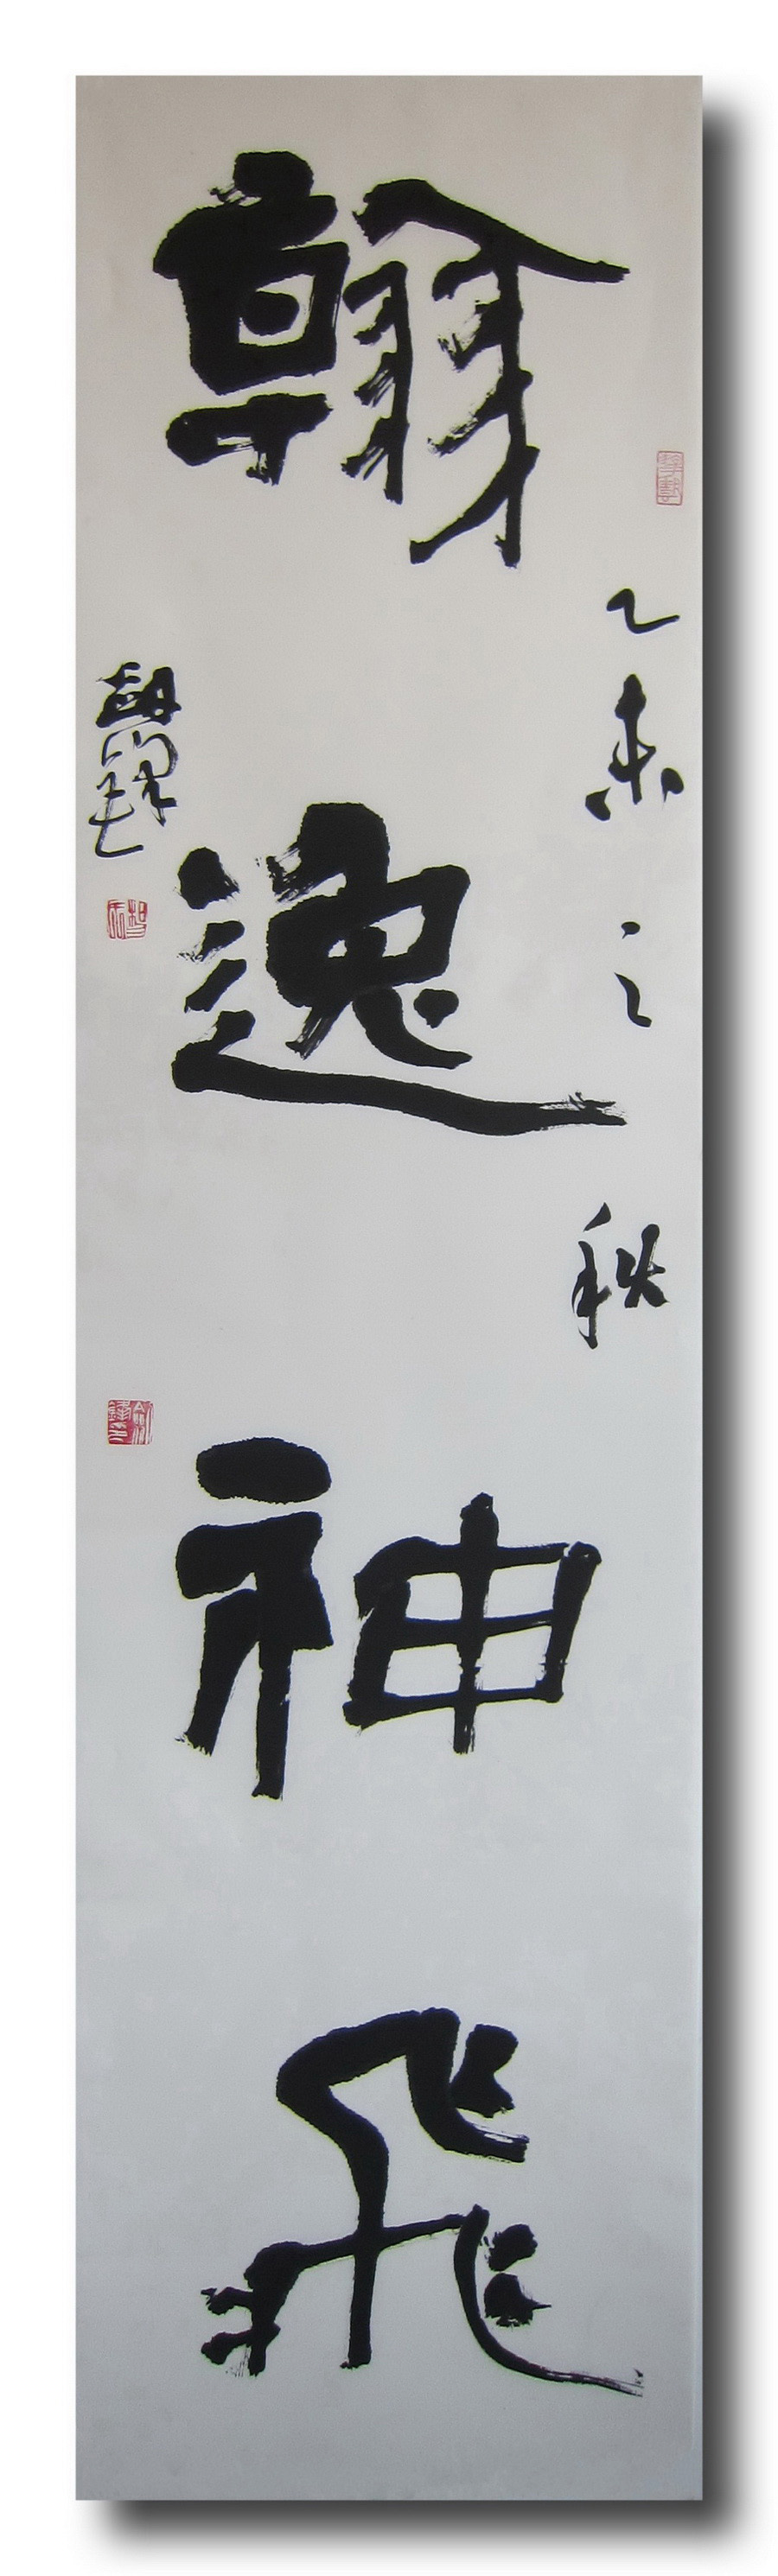 翰逸神飛
乙未之秋